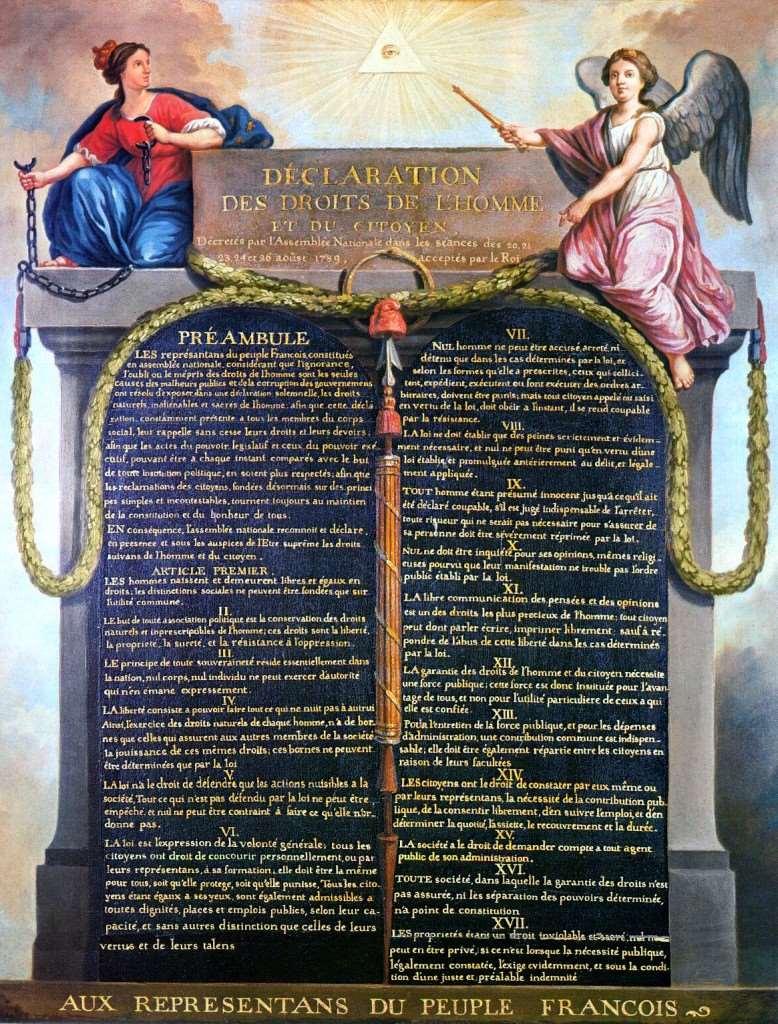 DÉCLARATION
DES DROITS DE L'HOMME
ET DU CITOYEN,
Décretés par l'Assemblée Nationale dans les séances des 20, 21
23, 24 et 26 août 1789, acceptés par le Roi
PRÉAMBULE
LES représantans du peuple Francois, constitués
en assemblée nationale, considérant que l'ignorance,
l'oubli ou le mépris des droits de l'homme sont les seules
causes des malheurs publics et de la corruption des gouvernemens
ont résolu d'exposer dans une déclaration solemnelle, les droits
naturels, inaliénables et sacrés de l'homme; afin que cette décla
ration, constamment présente a tous les membres du corps
social, leur rappelle sans cesse leurs droits et leurs devoirs
afin que les actes du pouvoir législatif et ceux du pouvoir exé
cutif, pouvant être a chaque instant comparés avec le but
de toute institution politique, en soient plus respectés; afin que
les reclamations des citoyens, fondées désormais sur des princi
pes simples et incontestables, tournent toujours au maintien
de la constitution et du bonheur de tous.
EN conséquence, l'assemblée nationale reconnoit et déclare
en presence et sous les auspices de l'Etre suprême les droits
suivans de l'homme et du citoyen.
ARTICLE PREMIER.
LES hommes naissent et demeurent libres et égaux en
droits; les distinctions sociales ne peuvent être fondées que sur
l'utilité commune.
II.
LE but de toute association politique est la conservation des droits
naturels et inprescriptibles de l'homme; ces droits sont la liberté,
la proprieté, la sureté, et la résistance à l'oppression.
III.
LE principe de toute souveraineté réside essentiellement dans
la nation, nul corps, nul individu ne peut exercer d'autorité
qui n'en émane expressement.
IV.
LA liberté consiste a pouvoir faire tout ce qui ne nuit pas à autrui
Ainsi, l'exercice des droits naturels de chaque homme, n'a de bor
nes que celles qui assurent aux autres membres de la société
la jouissance de ces mêmes droits; ces bornes ne peuvent
être déterminées que par la loi
V.
LA loi n'a le droit de défendre que les actions nuisibles a la
société, Tout ce qui n'est pas défendu par la loi ne peut être
empêché, et nul ne peut être contraint à faire ce qu'elle n'or-
donne pas.
VI.
LA loi est l'expression de la volonté générale; tous les
citoyens ont droit de concourir personnellement, ou par
leurs représentans, à sa formation; elle doit être la même
pour tous, soit qu'elle protege, soit qu'elle punisse, Tous les cito
yens étant égaux a ses yeux, sont également admissibles a
toutes dignités, places et emplois publics, selon leur ca-
pacité, et sans autres distinction que celles de leurs
vertus et de leurs talens
VII.
NUL homme ne peut être accusé, arreté, ni
détenu que dans les cas déterminés par la loi, et
selon les formes qu'elle a prescrites, ceux qui sollici-
tent, expédient, exécutent ou font exécuter des ordres ar-
bitraires, doivent être punis; mais tout citoyen appelé ou saisi
en vertu de la loi, doit obéir a l'instant, il se rend coupable
par la résistance.
VIII.
LA loi ne doit établir que des peines strictement et évidem-
ment nécessaire, et nul ne peut être puni qu'en vertu d'une
loi établie, et promulguée antérierement au délit, et légale-
ment appliquée.
IX.
TOUT homme étant présumé innocent jusqu'a ce qu'il ait
été déclaré coupable, s'il est jugé indispensable de l'arrêter,
toute rigueur qui ne serait pas nécessaire pour s'assurer de
sa personne doit être sévèrement réprimée par la loi.
X.
NUL ne doit être inquiété pour ses opinions, mêmes religi-
euses pourvu que leur manifestation ne trouble pas l'ordre
public établi par la loi.
XI.
LA libre communication des pensées et des opinions
est un des droits les plus precieux de l'homme; tout citoyen
peut dont parler écrire, imprimer librement; sauf à ré-
pondre de l'abus de cette liberté dans les cas déterminés
par la loi.
XII.
LA garantie des droits de l'homme et du citoyen nécessite
une force publique; cette force est donc instituée pour l'avan-
tage de tous, et non pour l'utilité particuliere de ceux a qui
elle est confiée.
XIII.
Pour l'entretien de la force publique, et pour les dépenses
d'administration, une contribution commune est indispen-
sable; elle doit être également répartie entre les citoyens en
raison de leurs facultées
XIV.
LES citoyens ont le droit de constater par eux même ou
par leurs représentans, la nécessité de la contribution pub-
lique, de la consentir librement, d'en suivre l'emploi, et d'en
déterminer la quotité, l'assiette, le recouvrement et la durée.
XV.
LA société a le droit de demander compte a tout agent
public de son administration.
XVI.
TOUTE société, dans laquelle la garantie des droits n'est
pas assurée, ni les séparation des pouvoirs déterminée,
n'a point de constitution
XVII.
LES proprietés étant un droit inviolable et sacré, nul ne
peut en être privé, si ce n'est lorsque la nécessité publique,
légalement constatée, l'exige evidemment, et sous la condi-
tion d'une juste et préalable indemnité
AUX REPRESENTANS DU PEUPLE FRANCOIS